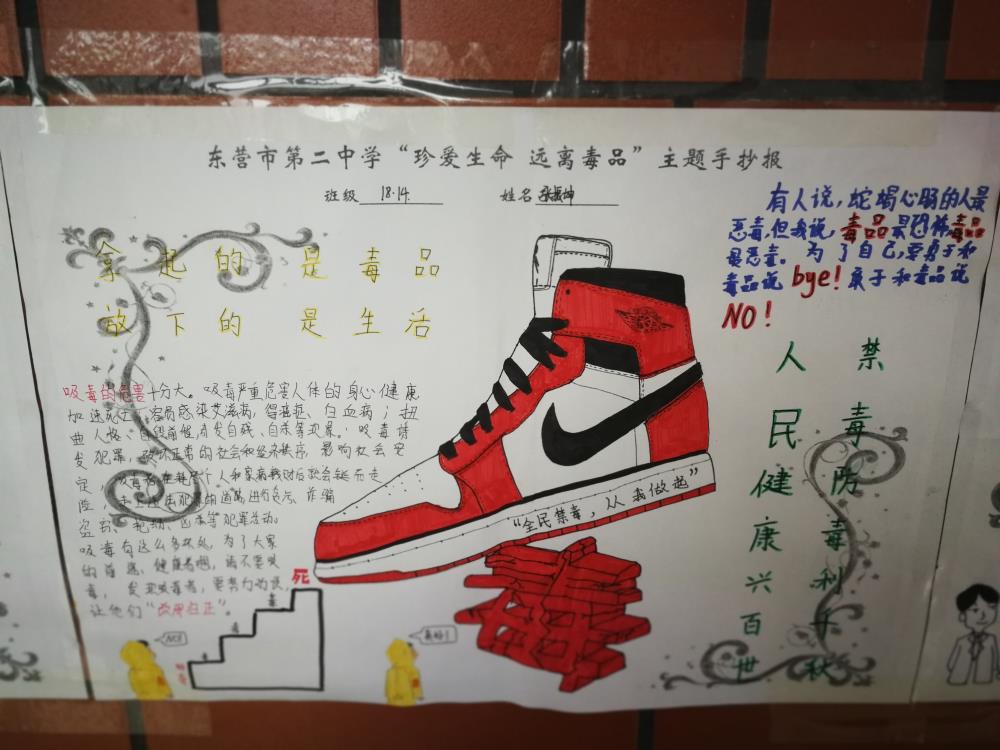 东营市第二中学“珍爱生命 远离毒品”主题手抄报
班级 18.14. 姓名
拿起的是毒品
放下的是生活
有人说，蛇蝎心肠的人最
恶毒，但我说，毒品
最恶毒。为了自己，要勇于和
毒品说bye！敢于和毒品说
NO！
吸毒的危害十分大。吸毒严重危害人体的身心健康
加速死亡，容易感染艾滋病，得 、白血病；扭
曲人格、自毁前程，引发自残、自杀等现象。吸毒诱
发犯罪，破坏正常的社会和经济秩序，影响社会安
定，吸毒者在耗尽个人和家庭钱财后就会铤而走
险，走上违法犯罪的道路进行 、诈骗
盗窃、抢劫、凶杀等犯罪活动。
吸毒有这么多坏处，为了大家
的前途、健康着想，请不要吸
毒，发现吸毒者，要努力劝说，
让他们“改邪归正”。
“全民禁毒，从我做起”
禁毒防毒利千秋
人民健康兴百世
死
毒
NO!